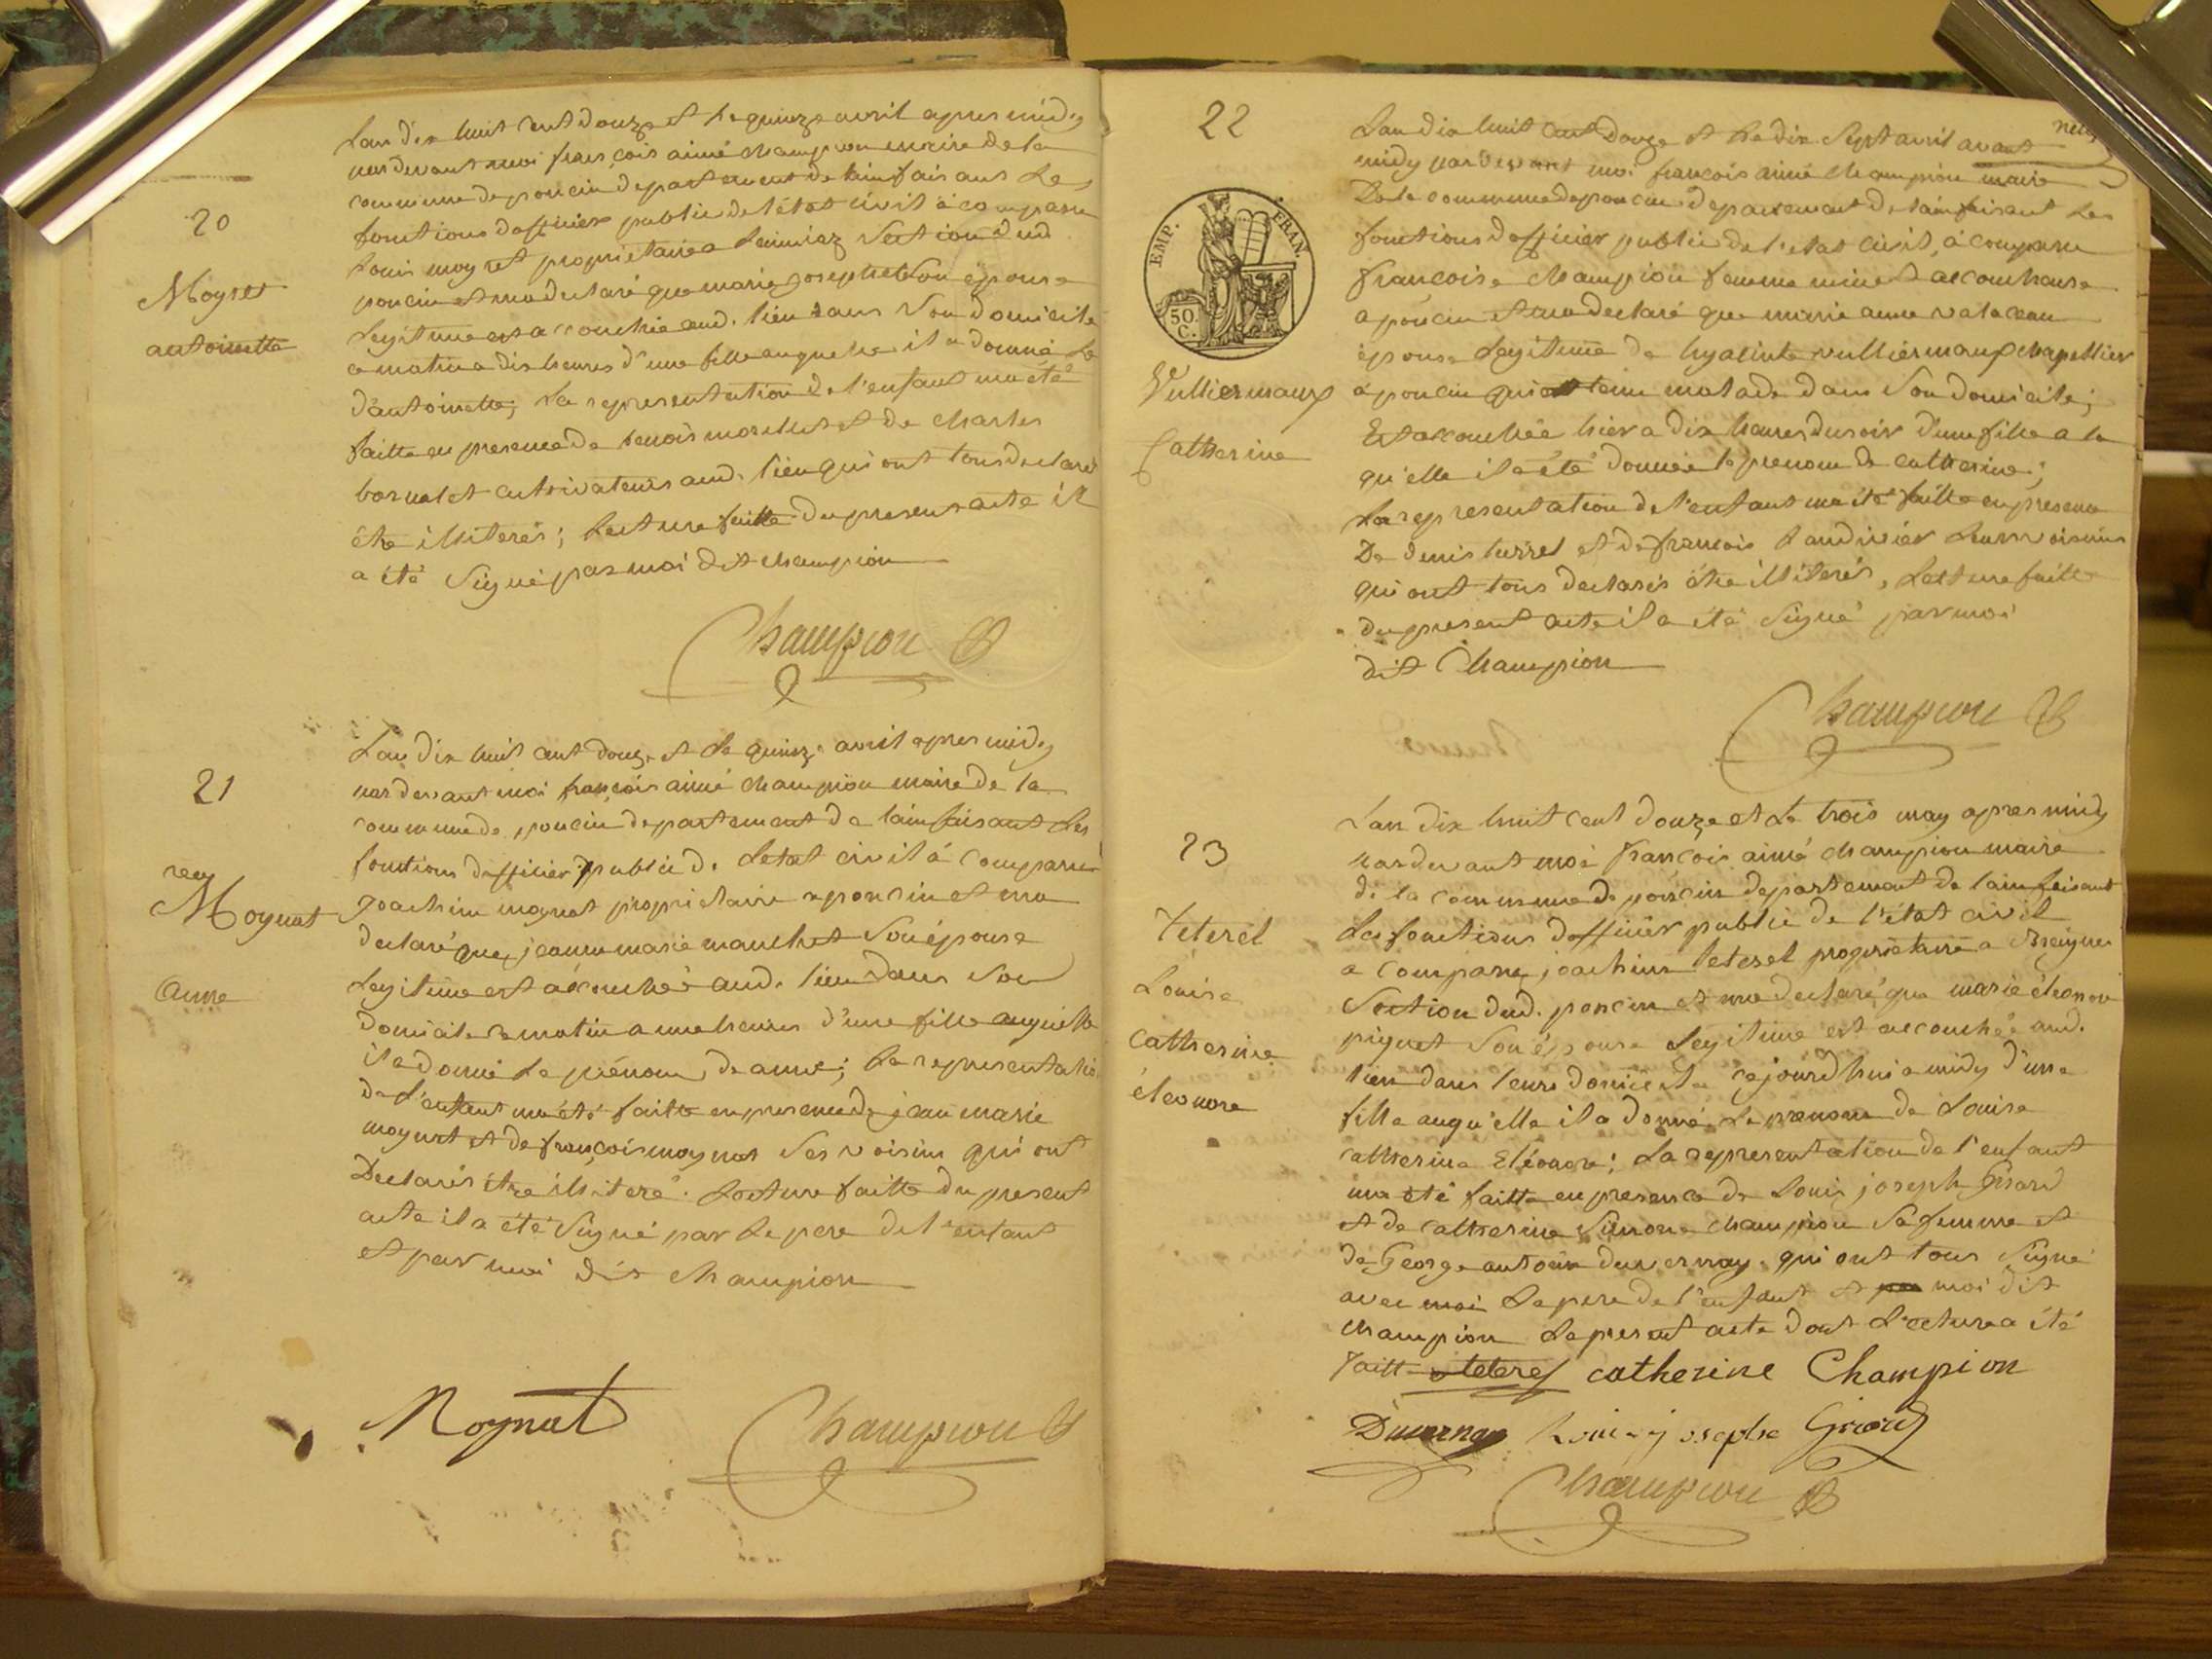 20
Moynet
antoinette
Lan dix huit cent douze et le quinze avril apres midy
pardevant moi françois aimé champion maire de la
commune de poncin departement de lain faisant les
fonctions dofficier public de l'état civil à comparu
Louis moynet proprietaire a section dud
poncin et ma declaré que marie josephte son épouse
Legitime est accouchée aud. lieu dans son domicile
ce matin a dix heures d'une fille auquelle il a donné le
d'antoinette; La representation de l'enfant ma été
faitte en presence de benois morellet et de charles
bornalet cultivateurs aud. lieu qui ont tous declaré
être illiterés; Lecture faitte du present acte il
a été signé par moi dit champion
Champion
21
Moynat
anne
Lan dix huit cent douze et le quinze avril apres midy
pardevant moi françois aimé champion maire de la
commune de poncin departement de lain faisant les
fonctions dofficier public de Letat civil à comparu
joachim moynat proprietaire a poncin et ma
declaré que jeanne marie manchet son épouse
Legitime est accouchée aud. lieu dans son
domicile ce matin a une heures d'une fille auquelle
il a donné le prénom de anne; La representatio
de L'enfant ma été faitte en presence de jean marie
moynat et de françois moynat ses voisins qui ont
Declarés être illiteré. Lecture faitte du present
acte il a été signé par le pere de l'enfant
et par moi dit champion
Moynat Champion
22
EMP. FRAN.
50. C.
Vulliermaux
Catherine
Lan dix huit cent Douze et le dix sept avril avant
midy pardevant moi françois aimé champion maire
De la commune de poncin departement de lain faisant les
fonctions dofficier public de l'etat civil, à comparu
françoise champion femme minet accoucheuse
a poncin et ma declaré que marie anne
épouse Legitime de hyacinte vulliermaux chapellier
a poncin qui est tenu malade dans son domicile;
Est accouchée hier a dix heures du soir d'une fille a la
qu'elle il a été donnée le prenom de catherine;
La representation de l'enfant ma été faitte en presence
De denis turrel et de françois Landivier leurs voisins
qui ont tous declarés être illiterés, Lecture faitte
du present acte il a été signé par moi
dit Champion
Champion
23
Teterel
Louise
Catherine
éleonore
Lan dix huit cent douze et le trois may apres midy
pardevant moi françois aimé champion maire
de la commune de poncin departement de lain faisant
Les fonctions dofficier public de l'état civil
a comparu joachim teterel proprietaire a
Section dud. poncin et ma declaré que marie éleonore
piquet son épouse Legitime est accouchée aud.
lieu dans leurs domicile cejourd'hui a midy d'une
fille auqu'elle il a donné le prenom de Louise
catherine Eléonore; La representation de l'enfant
ma été faitte en presence de Louis joseph Girard
et de catherine simone champion sa femme et
de George antoine duvernay qui ont tous signé
avec moi le pere de l'enfant et moi dit
champion Le present acte dont Lecture a été
faitte teterel catherine Champion
Duvernay Louis joseph Girard
Champion